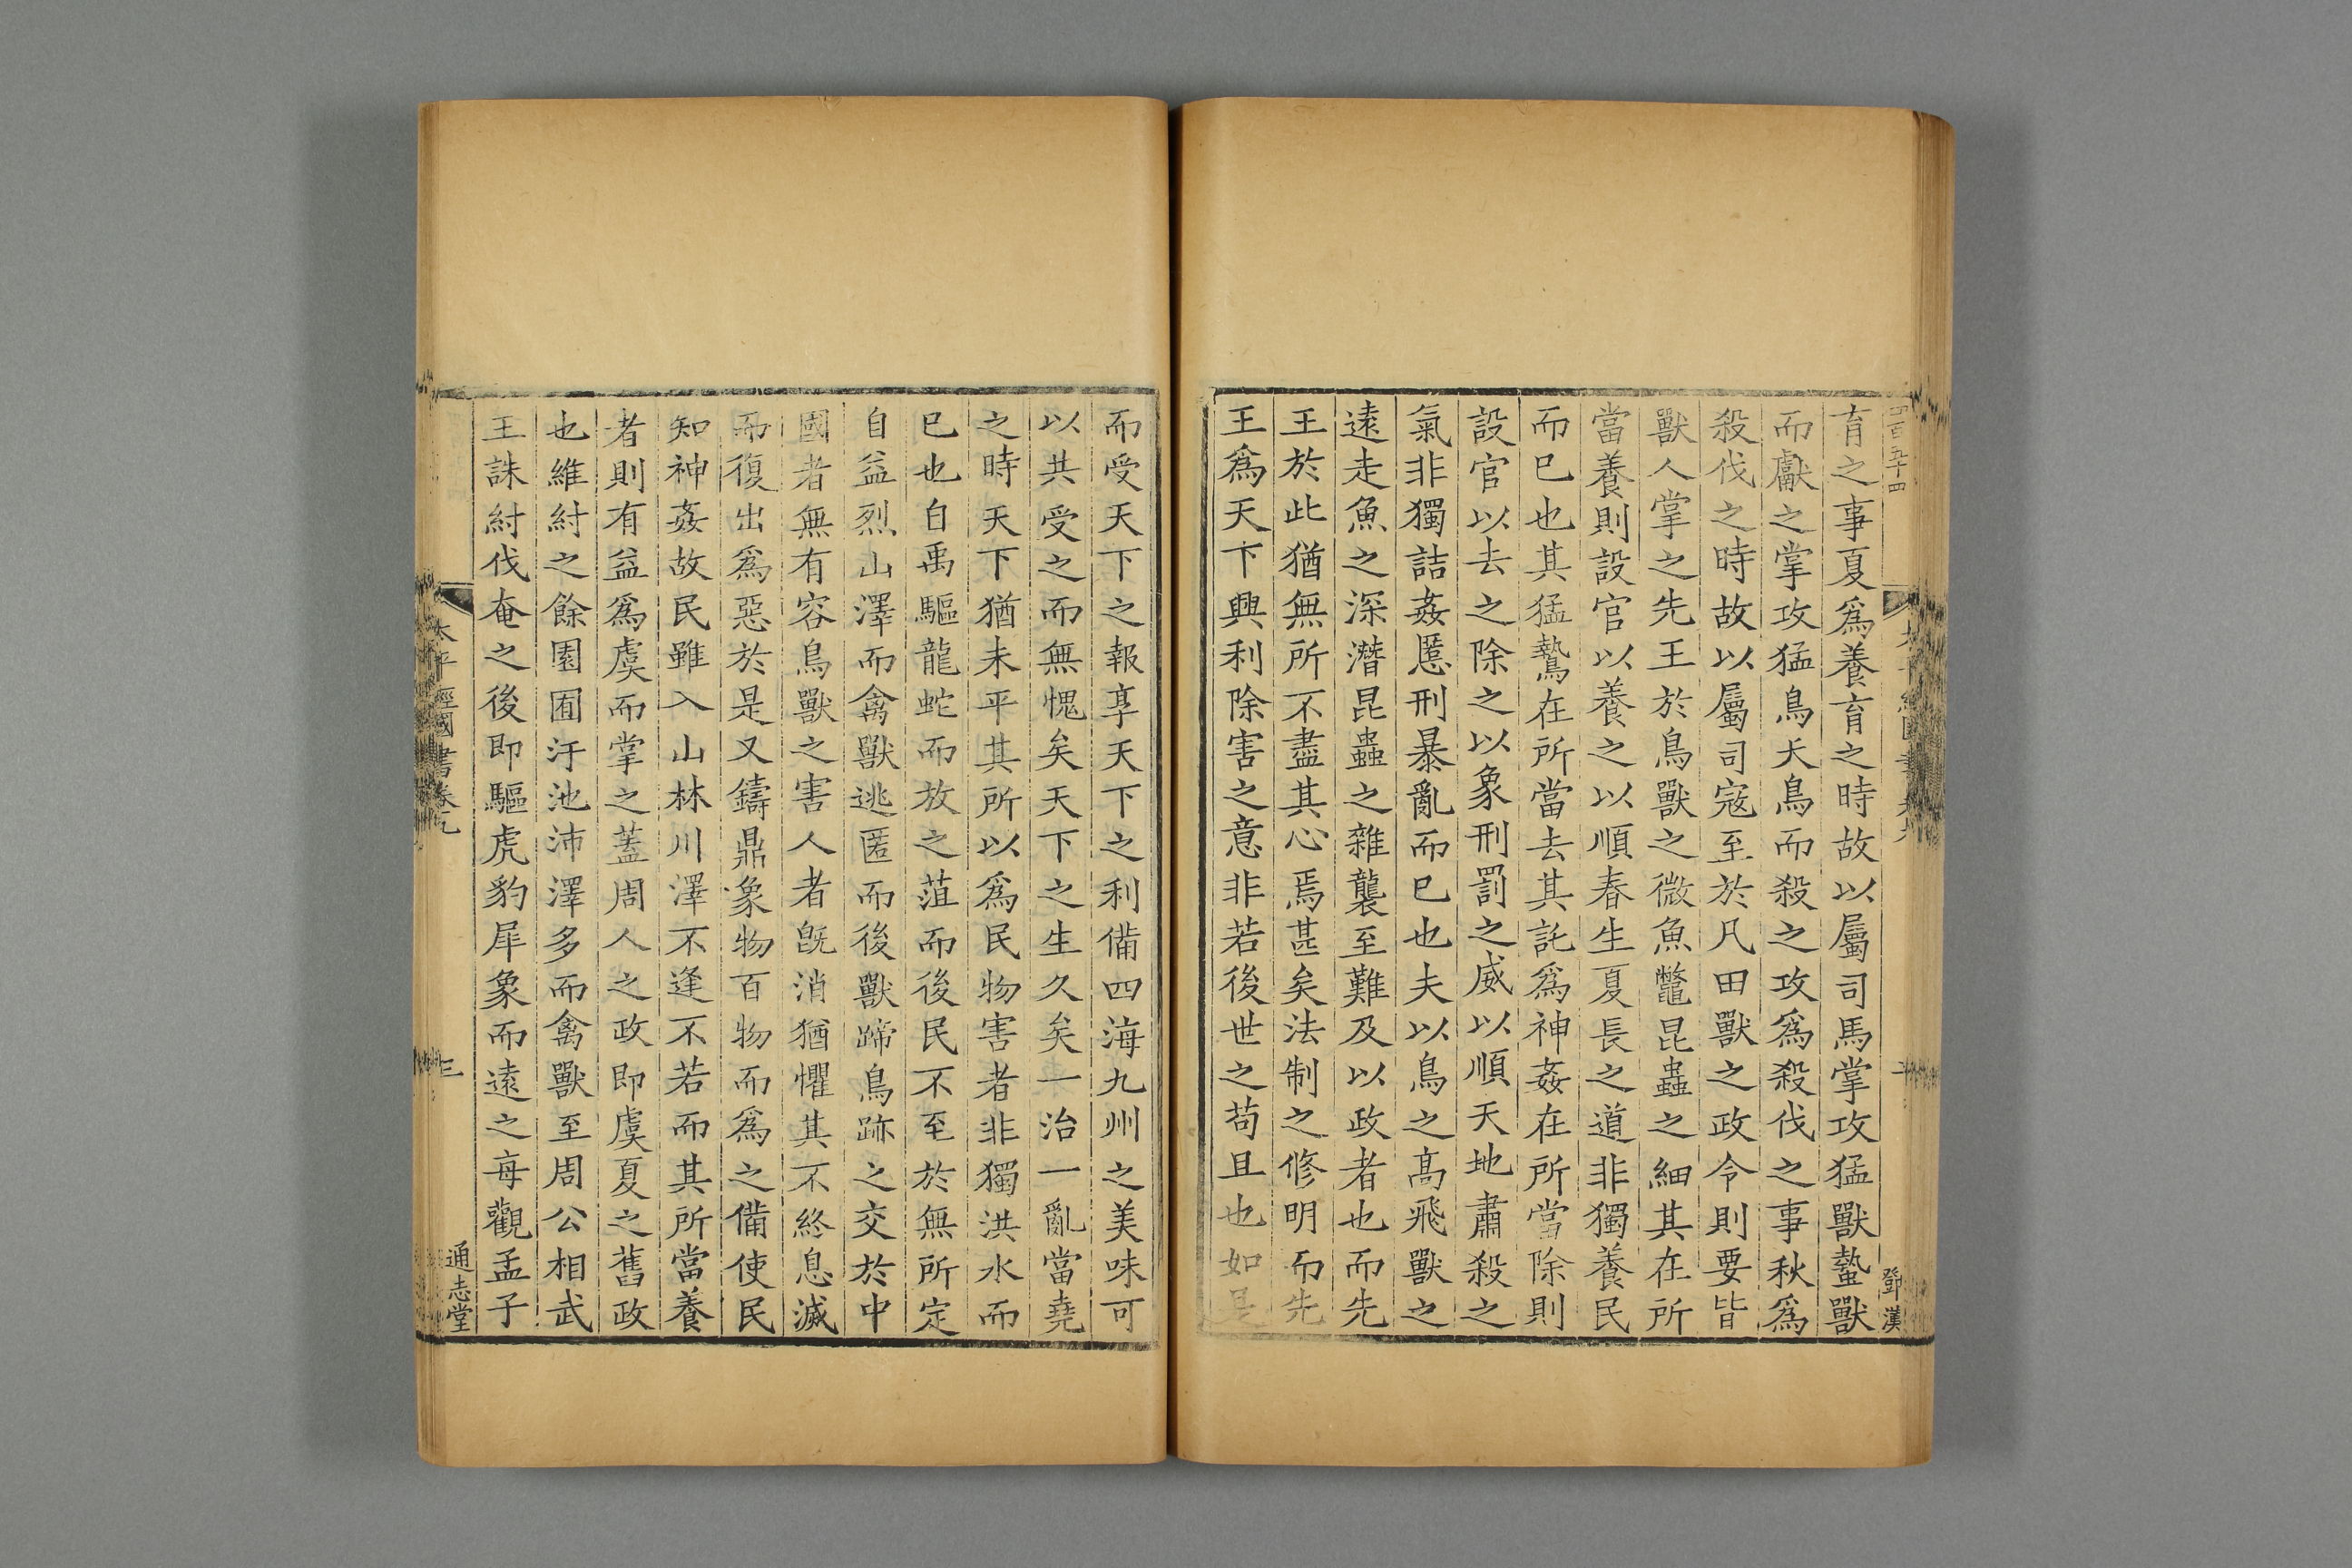 四百五十四
鄧漢
育之事夏爲養育之時故以屬司馬掌攻猛獸蟄獸
而獻之掌攻猛鳥夭鳥而殺之攻爲殺伐之事秋爲
殺伐之時故以屬司寇至於凡田獸之政令則要皆
獸人掌之先王於鳥獸之微魚鼈昆蟲之細其在所
當養則設官以養之以順春生夏長之道非獨養民
而已也其猛鷙在所當去其託爲神姦在所當除則
設官以去之除之以象刑罰之威以順天地肅殺之
氣非獨詰姦慝刑暴亂而已也夫以鳥之高飛獸之
遠走魚之深潛昆蟲之雜襲至難及以政者也而先
王於此猶無所不盡其心焉甚矣法制之修明而先
王爲天下興利除害之意非若後世之苟且也如是
而受天下之報享天下之利備四海九州之美味可
以共受之而無愧矣天下之生久矣一治一亂當堯
之時天下猶未平其所以爲民物害者非獨洪水而
已也自禹驅龍蛇而放之菹而後民不至於無所定
自益烈山澤而禽獸逃匿而後獸蹄鳥跡之交於中
國者無有容鳥獸之害人者旣消猶懼其不終息滅
而復出爲惡於是又鑄鼎象物百物而爲之備使民
知神姦故民雖入山林川澤不逢不若而其所當養
者則有益爲虞而掌之蓋周人之政即虞夏之舊政
也維紂之餘園囿汙池沛澤多而禽獸至周公相武
王誅紂伐奄之後即驅虎豹犀象而遠之每觀孟子
太平經國書卷九
三
通志堂